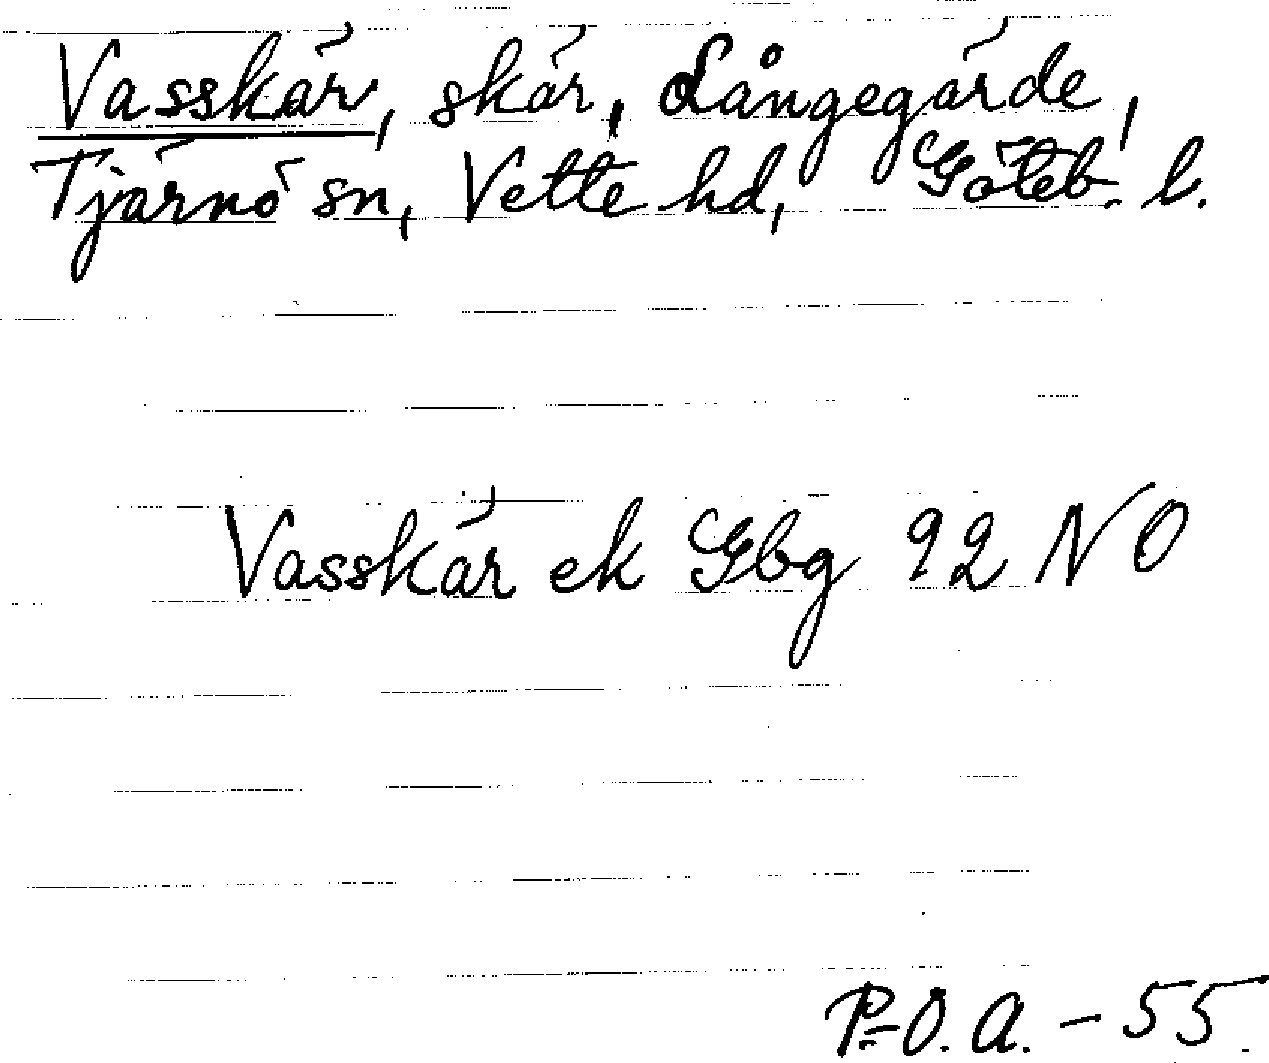 Vasskär, skär, Långegärde,
Tjärnö sn, Vette hd, Göteb. l.
Vasskär ek Gbg 92 NO
P-O. A. - 55.